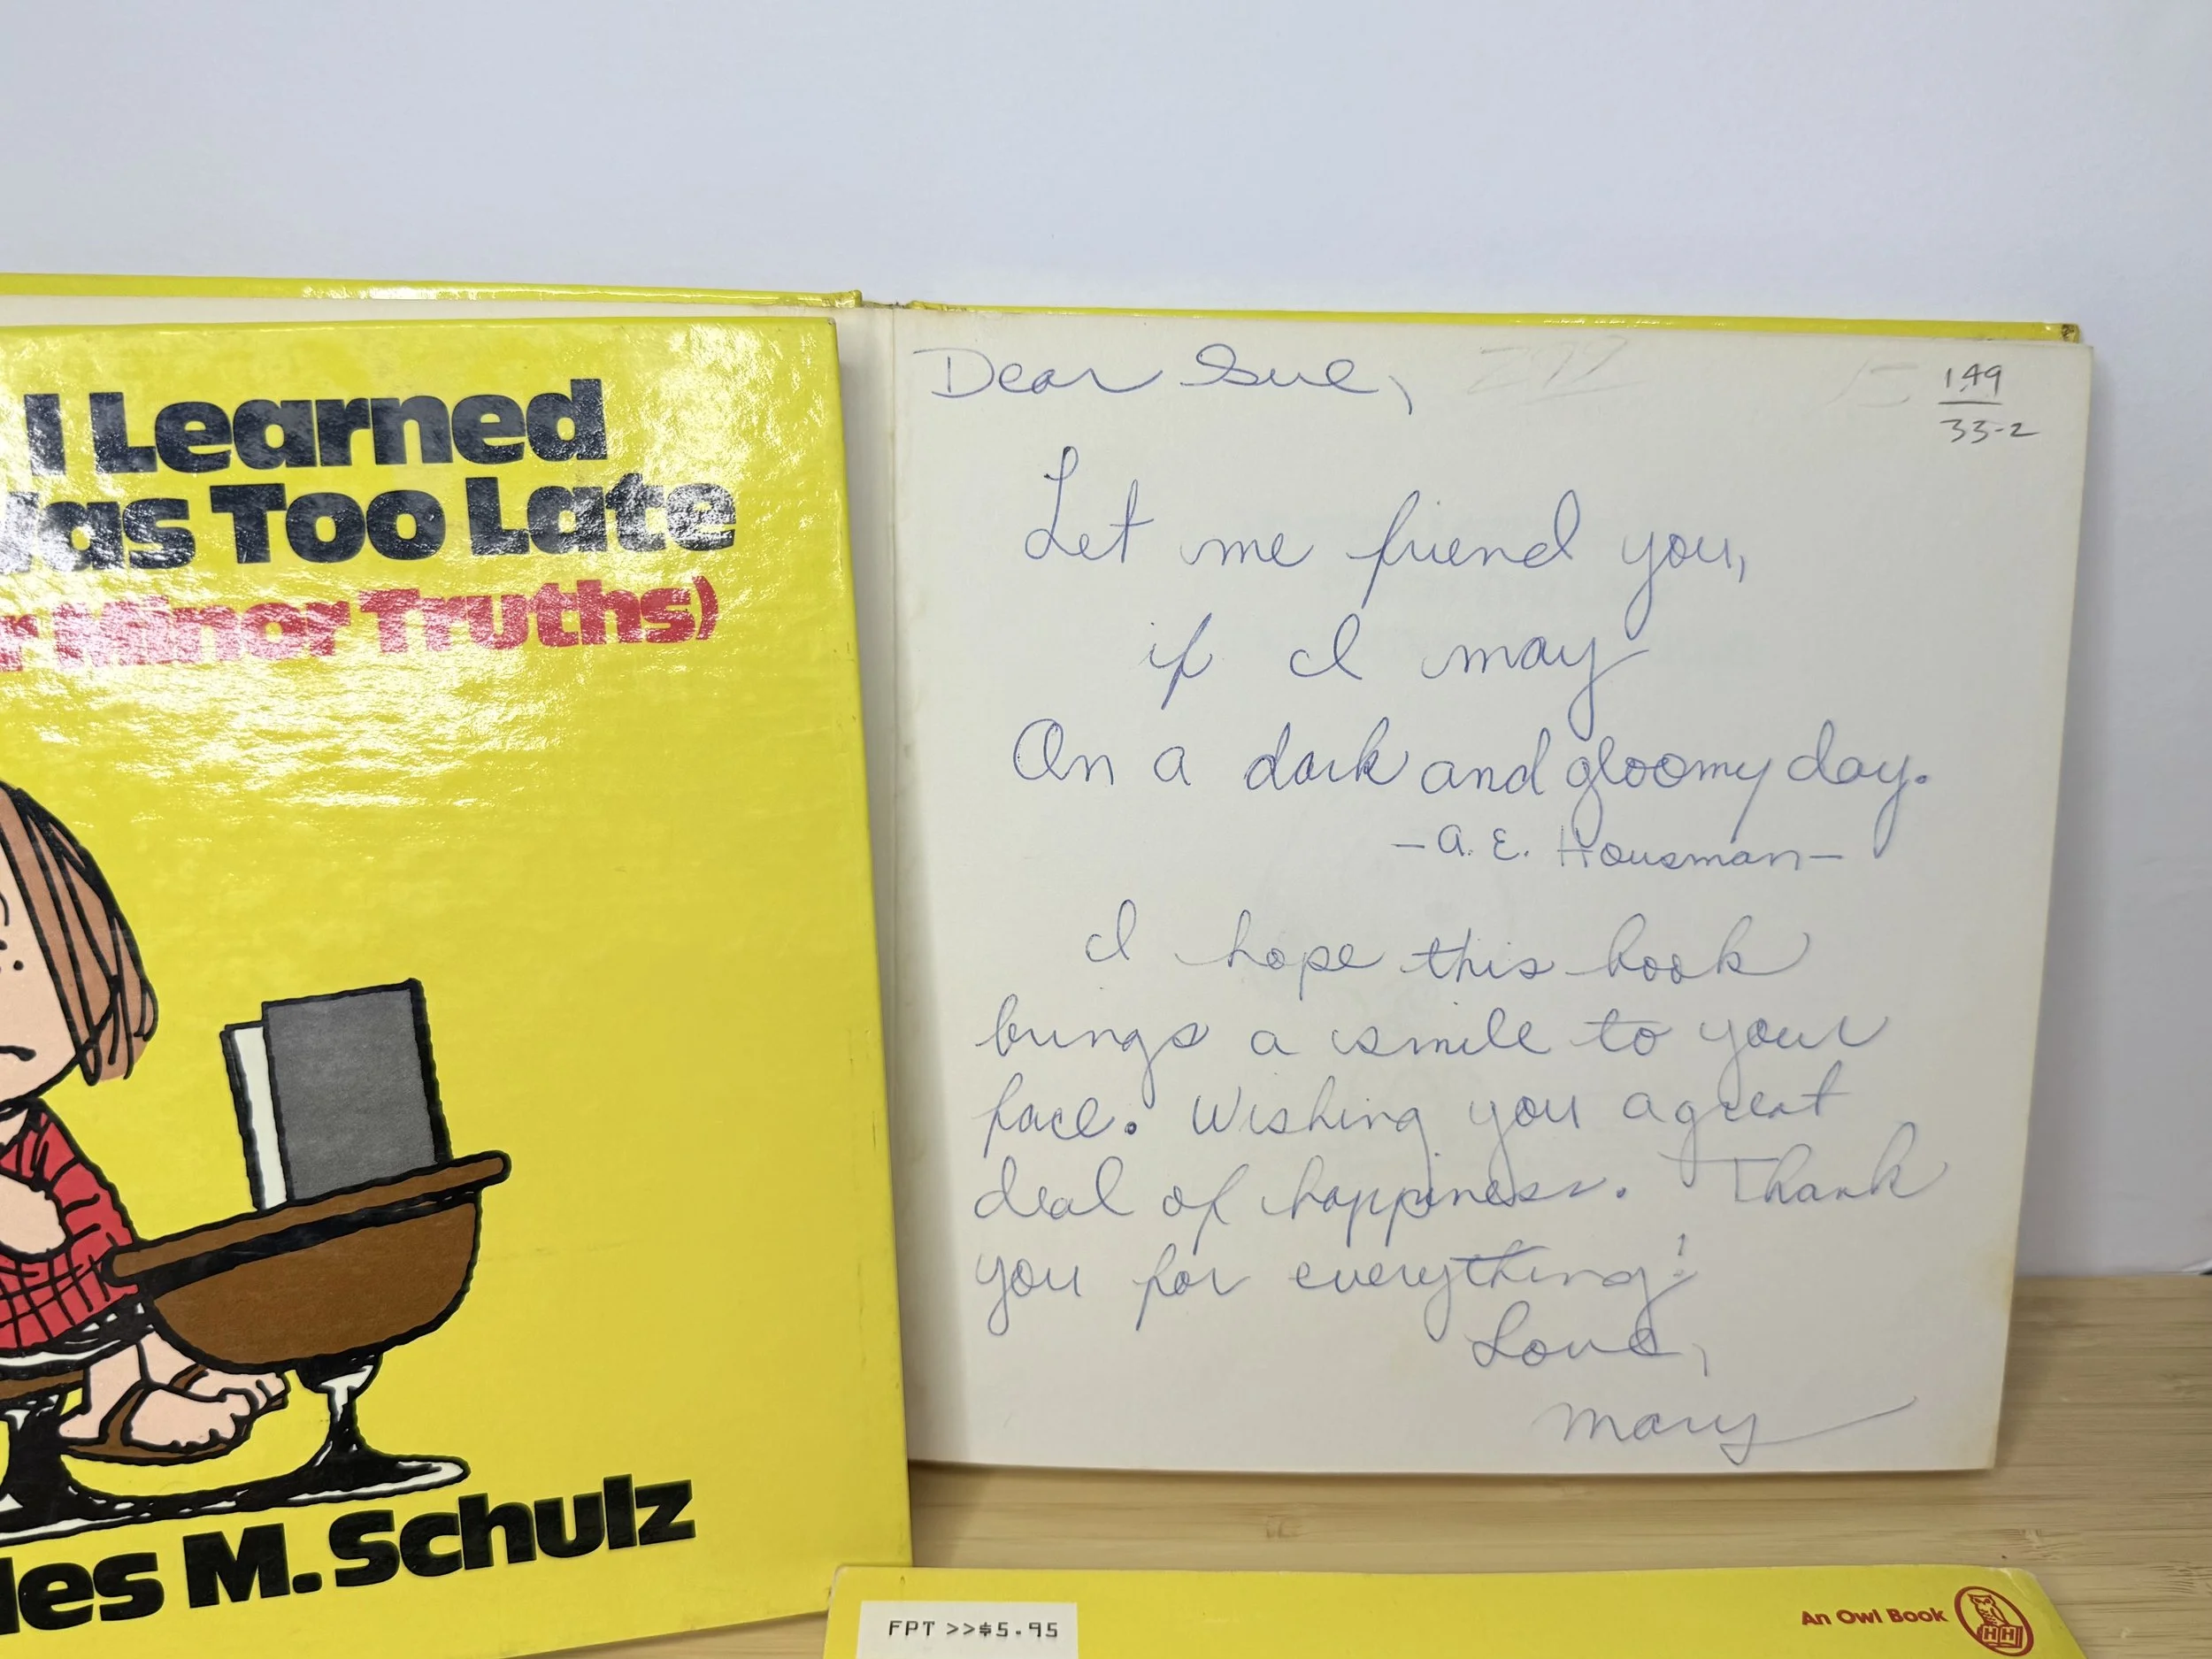 I Learned
Was Too Late
Minor Truths)
M. Schulz
Dear Sue,
292
15
1.49
33-2
Let me friend you,
if I may
On a dark and gloomy day.
—A. E. Housman—
I hope this book
brings a smile to your
face. Wishing you a great
deal of happiness. Thank
you for everything!
Love,
Mary
FPT >>$5.95
An Owl Book
HH